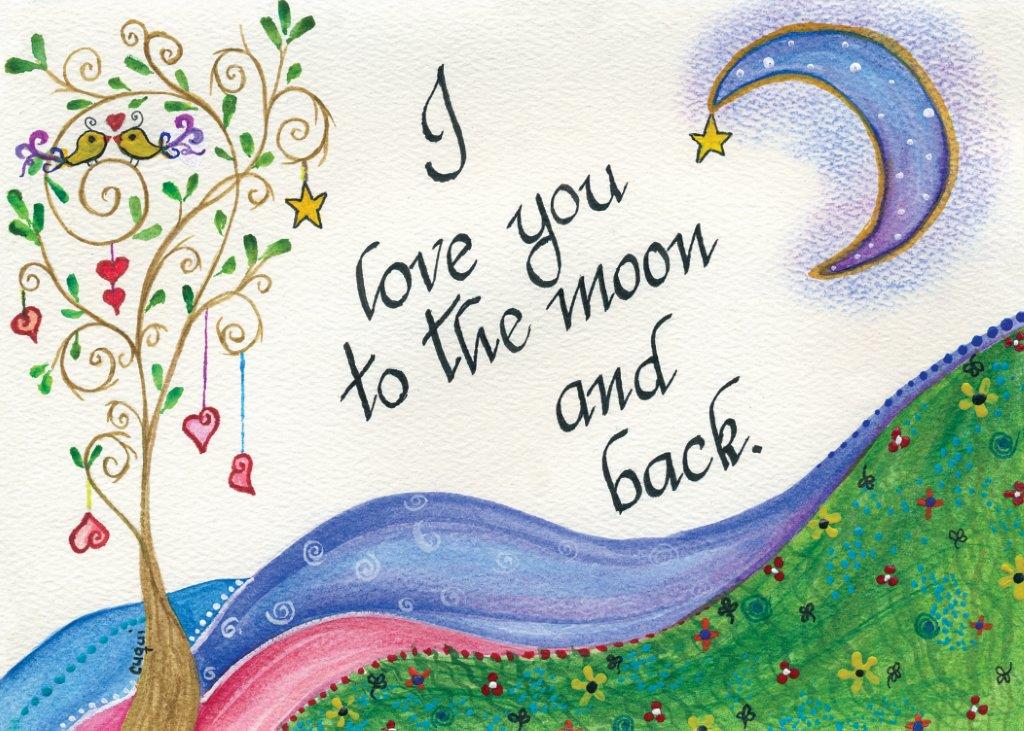 I
love you
to the moon
and
back.
cugui